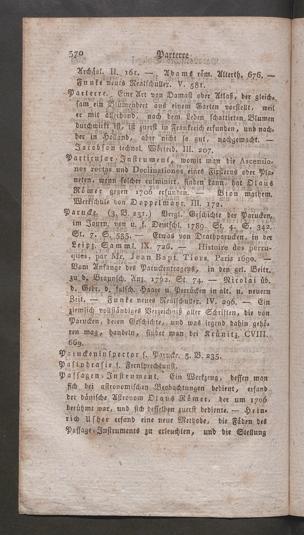 570 Parterre
Archäol. II. 161. — Adams röm. Alterth. 676. —
Funke neues Realschullex. V. 581.
Parterre. Eine Art von Damast oder Atlaß, der gleich-
sam ein Blumenbeet aus einem Garten vorstellt, weil
er mit allerhand, nach dem Leben schattirten Blumen
durchwirkt ist, ist zuerst in Frankreich erfunden, und nach-
her in Holland, aber nicht so gut, nachgemacht. —
Jacobson technol. Wörterb. III. 207.
Particular-Instrument, womit man die Ascensio-
nes rectas und Declinationes eines Fixsterns oder Pla-
neten, wenn solcher culminirt, finden kann, hat Olaus
Römer gegen 1700 erfunden. — Bion mathem.
Werkschule von Doppelmayr. III. 172.
Parucke. (3. B. 231.) Vergl. Geschichte der Parucken,
im Journ. von u. f. Deutschl. 1789. St. 4. S. 342.
St. 7. S. 555. — Etwas von Drathparucken, in der
Leipz. Samml. IX. 726. — Histoire des perru-
ques, par Mr. Jean Bapt. Tiers, Paris 1690. —
Vom Anfange des Paruckentragens, in den gel. Beitr.
zu d. Braunschw. Anz. 1762. St. 74. — Nicolai üb.
d. Gebr. d. falsch. Haare u. Perrucken in alt. u. neuern
Zeit. — Funke neues Realschullex. IV. 296. — Ein
ziemlich vollständiges Verzeichniß aller Schriften, die von
Parucken, deren Geschichte, und was irgend dahin gehö-
ren mag, handeln, findet man bey Krünitz CVIII.
669.
Paruckeninspector s. Parucke. 3. B. 235.
Pasiphrasie s. Fernsprechkunst.
Passagen-Instrument. Ein Werkzeug, dessen man
sich bei astronomischen Beobachtungen bedient, erfand
der dänische Astronom Olaus Römer, der um 1700
berühmt war, und sich desselben zuerst bediente. — Hein-
rich Usher erfand eine neue Methode, die Fäden des
Passage-Instruments zu erleuchten, und die Stellung